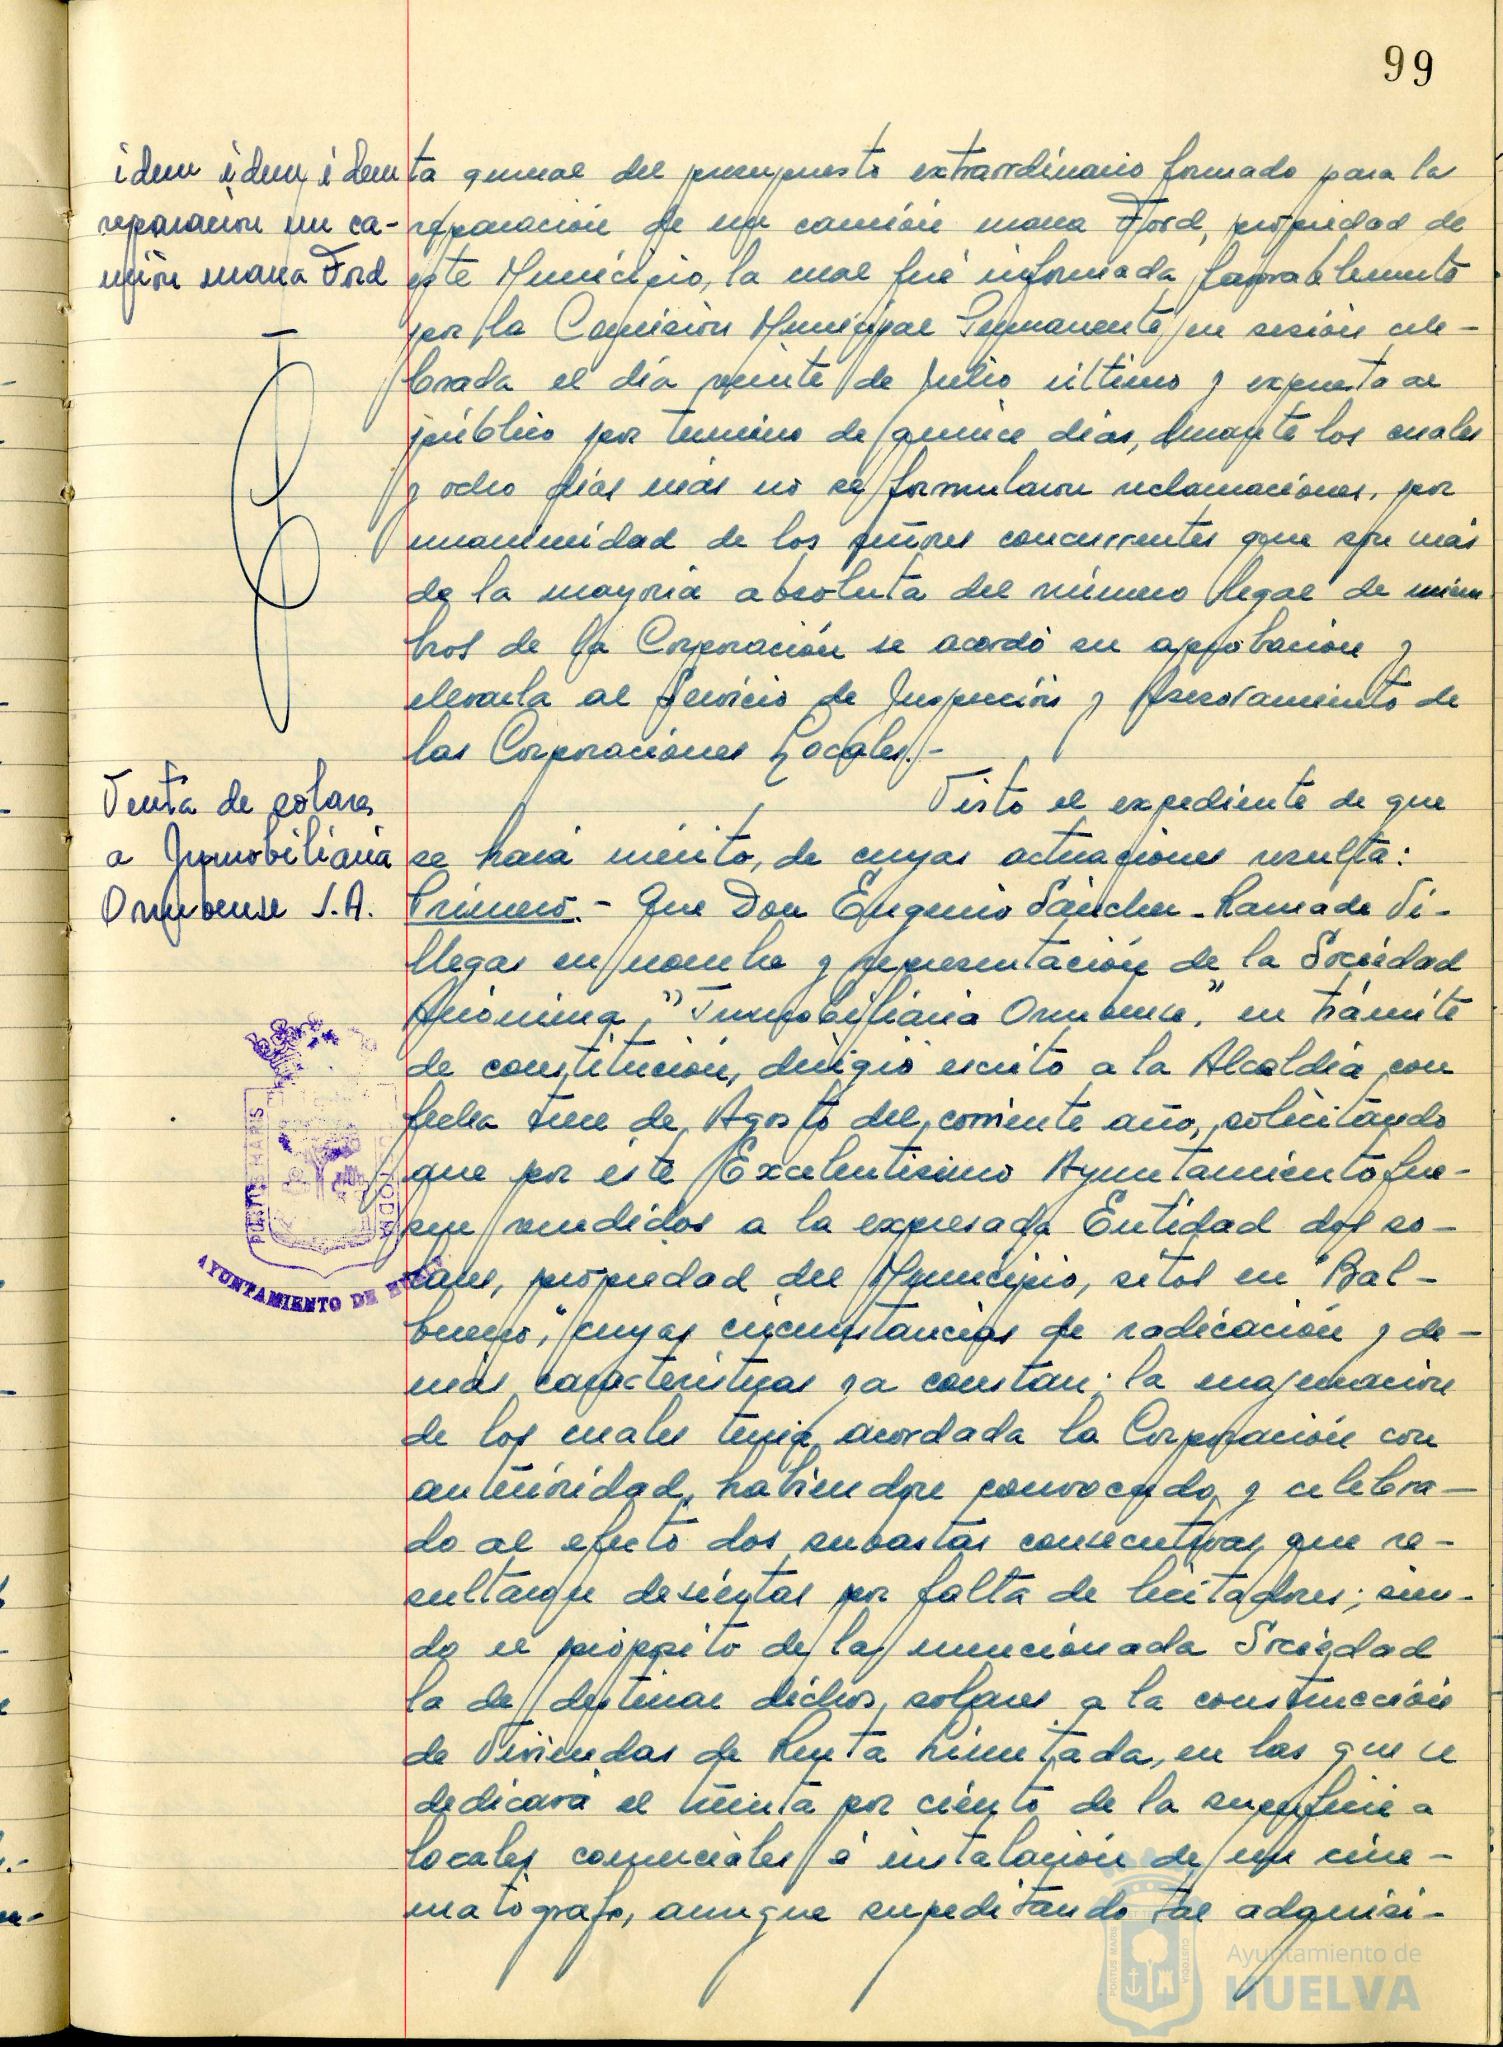 99
idem idem idem
reparación un ca-
mión marca Ford
ta general del presupuesto extraordinario formado para la
reparación de un camión marca Ford, propiedad de
este Municipio, la cual fué informada favorablemente
por la Comisión Municipal Permanente en sesión cele-
brada el día veinte de Julio último y expuesta al
público por termino de quince dias, durante los cuales
y ocho dias más no se formularon reclamaciones, por
unanimidad de los señores concurrentes que son más
de la mayoria absoluta del número legal de miem
bros de la Corporación se acordó su aprobación y
elevarla al Servicio de Inspección y Asesoramiento de
las Corporaciones Locales.-
Venta de solares
a Inmobiliaria
Onubense S.A.
Visto el expediente de que
se hará mérito, de cuyas actuaciones resulta:
Primero.- Que Don Eugenio Sánchez-Ramade Vi-
llegas en nombre y representación de la Sociedad
Anónima, "Inmobiliaria Onubense", en trámite
de constitución, dirigió escrito a la Alcaldía con
fecha trece de Agosto del corriente año, solicitando
que por éste Excelentísimo Ayuntamiento fue-
sen vendidos a la expresada Entidad dos so-
lares, propiedad del Municipio, sitos en "Bal-
bueno", cuyas circunstancias de radicación y de-
más caracteristicas ya constan; la enajenación
de los cuales tenia acordada la Corporación con
anterioridad, habiendose convocado y celebra-
do al efecto dos subastas consecutivas que re-
sultaron desiertas por falta de licitadores; sien-
do el propósito de la mencionada Sociedad
la de destinar dichos solares a la construcción
de Viviendas de Renta Limitada, en las que se
dedicará el treinta por ciento de la superficie a
locales comerciales é instalación de un cine-
matógrafo, aunque supeditando tal adquisi-
PORTUS MARIS CUSTODIA
AYUNTAMIENTO DE HUELVA
PORTUS MARIS CUSTODIA
Ayuntamiento de
HUELVA